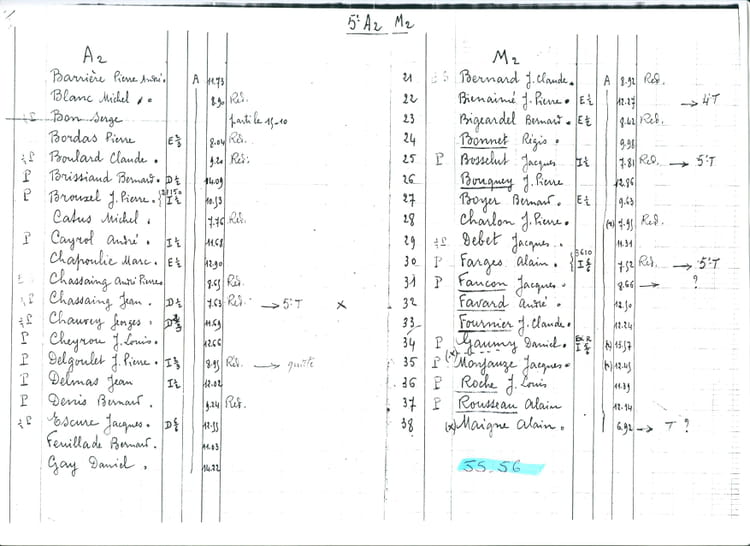 5e A2 M2
A2
Barrière Pierre André. A 11.73
Blanc Michel 8.90 Red.
½P Bon Serge parti le 15.10
Bordas Pierre E½ 8.04 Red.
½P Boulard Claude. 9.20 Red.
P Brissiaud Bernard. D½ 14.09
P Brouzel J. Pierre. I½ 10.53
Catus Michel. 7.76 Red.
P Cayrol André. I½ 11.68
Chapoulie Marc. E½ 12.90
Chassaing André Pierre 8.65 Red.
½P Chassaing Jean. D½ 7.63 Red. → 5eT x
½P Chauvey Georges. 11.69
P Cheyrou J. Louis. 12.66
P Delgoulet J. Pierre. 8.95 Red. → quitte
P Delmas Jean I½ 12.02
P Denis Bernard. 9.24 Red.
½P Escure Jacques. 12.55
Feuillade Bernard. 11.03
Gay Daniel. 14.22
M2
21 Bernard J. Claude. A 8.92 Red.
22 Bienaimé J. Pierre. E½ 12.27 → 4eT
23 Bigeardel Bernard. E½ 8.42 Red.
24 Bonnet Régis. 9.98
25 P Bosselut Jacques I½ 7.81 Red. → 5eT
26 Bouquey J. Pierre 12.86
27 Boyer Bernard. E½ 9.63
28 Charlon J. Pierre. (x) 7.95 Red.
29 ½P Debet Jacques. 11.31
30 P Farges Alain. 3610 7.52 Red. → 5eT
31 P Faucon Jacques. 8.66 → ?
32 Favard André. 12.50
33 Fournier J. Claude. 12.24
34 P Gaumy Daniel. (x) 13.57
35 P (x) Manjauze Jacques. (x) 12.45
36 P Roche J. Louis 11.39
37 P Rousseau Alain 12.14
38 (x) Maigne Alain. 6.92 → T ?
55.56